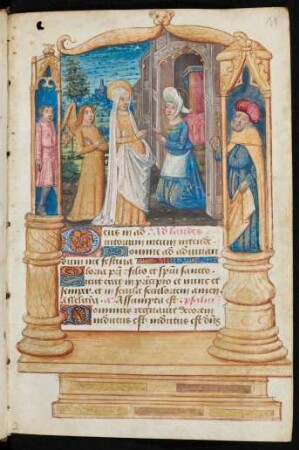 Deus in ad Ad laudes
iutorium meum intende
Domine ad adiuuan
dum me festina
Gloria pri et filio et spui sancto
Sicut erat in principio et nunc et
semper et in secula seculorum amen
a. Assumpta est psalmus
Dominus regnauit decorem
indutus est indutus est dns